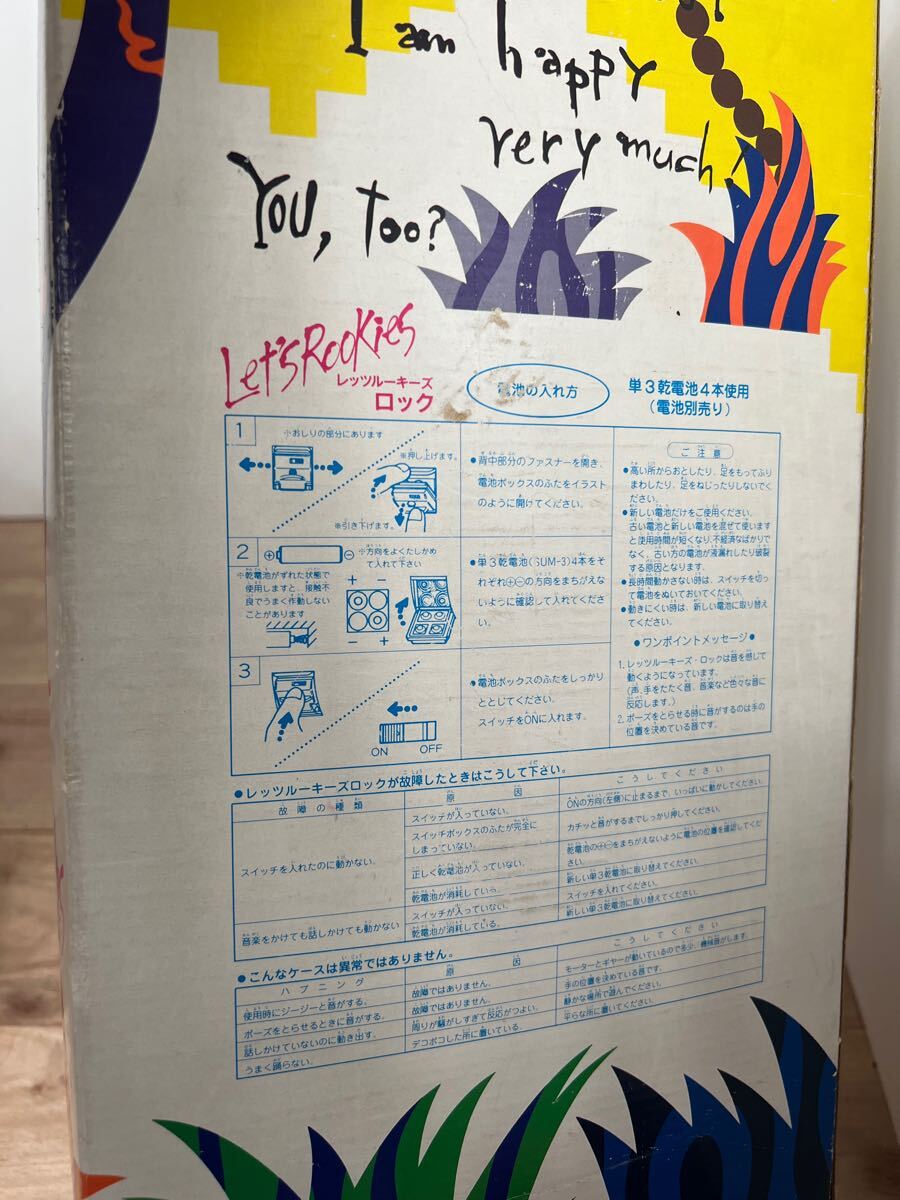 I am happy
very much!
YOU, Too?
Let'sRookies
レッツルーキーズ
ロック
電池の入れ方
単3乾電池4本使用
(電池別売り)
1
※おしりの部分にあります
※押し上げます。
※引き下げます。
●背中部分のファスナーを開き、
電池ボックスのふたをイラスト
のように開けてください。
2
⊕ ⊖
※方向をよくたしかめ
て入れて下さい
※乾電池がずれた状態で
使用しますと、接触不
良でうまく作動しない
ことがあります
+ −
− +
●単3乾電池(SUM-3)4本をそ
れぞれ⊕⊖の方向をまちがえな
いように確認して入れてくださ
い。
3
ON OFF
●電池ボックスのふたをしっかり
ととじてください。
スイッチをONに入れます。
ご注意
●高い所からおとしたり、足をもってふり
まわしたり、足をねじったりしないでく
ださい。
●新しい電池だけをご使用ください。
古い電池と新しい電池を混ぜて使います
と使用時間が短くなり、不経済なばかりで
なく、古い方の電池が液漏れしたり破裂
する原因となります。
●長時間動かさない時は、スイッチを切っ
て電池をぬいておいてください。
●動きにくい時は、新しい電池に取り替え
てください。
●ワンポイントメッセージ●
1.レッツルーキーズ・ロックは音を感じて
動くようになっています。
(声、手をたたく音、音楽など色々な音に
反応します。)
2.ポーズをとらせる時に音がするのは手の
位置を決めている音です。
●レッツルーキーズロックが故障したときはこうして下さい。
故障の種類 原因 こうしてください
スイッチを入れたのに動かない。
スイッチが入っていない。 ONの方向(左側)に止まるまで、いっぱいに動かしてください。
スイッチボックスのふたが完全に
しまっていない。 カチッと音がするまでしっかり押してください。
正しく乾電池が入っていない。 乾電池の⊕⊖をまちがえないように電池の位置を確認してくだ
さい。
乾電池が消耗している。 新しい単3乾電池に取り替えてください。
音楽をかけても話しかけても動かない
スイッチが入っていない。 スイッチを入れてください。
乾電池が消耗している。 新しい単3乾電池に取り替えてください。
●こんなケースは異常ではありません。
ハプニング 原因 こうしてください
使用時にジージーと音がする。 故障ではありません。 モーターとギヤーが動いているので多少、機械音がします。
ポーズをとらせるときに音がする。 故障ではありません。 手の位置を決めている音です。
話しかけていないのに動き出す。 周りが騒がしすぎて反応がつよい。 静かな場所で遊んでください。
うまく踊らない。 デコボコした所に置いている。 平らな所に置いてください。